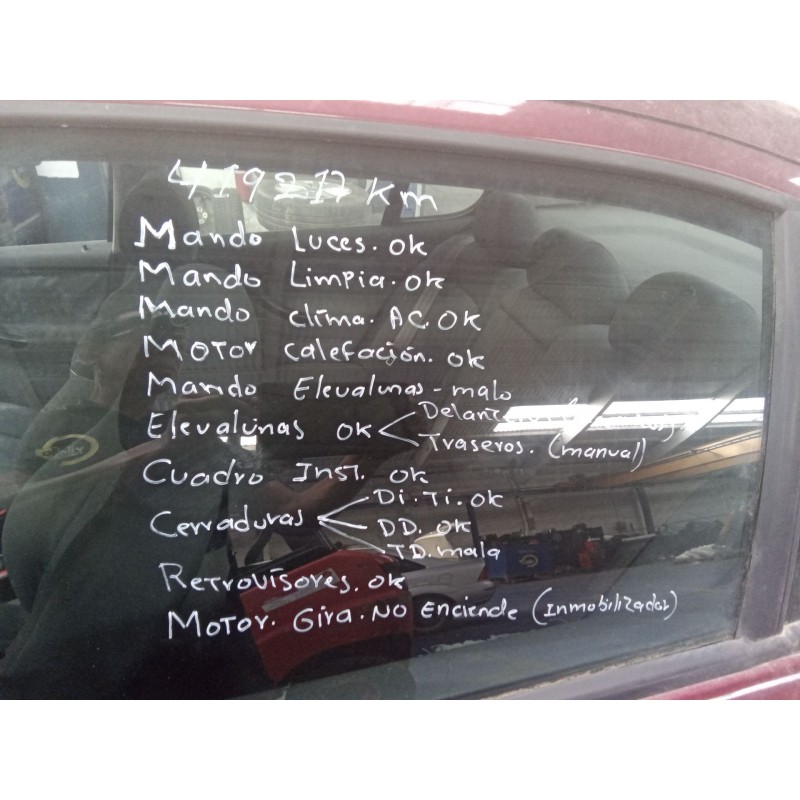 419217 km
Mando Luces. OK
Mando Limpia. OK
Mando clima. AC. OK
MOTOR calefación. OK
Mando Elevalunas - malo
Elevalunas OK
Traseros. (manual)
Cuadro Inst. OK
Di. Ti. OK
Cerraduras DD. OK
TD. mala
Retrovisores. OK
MOTOR. Gira. NO Enciende (Inmobilizador)